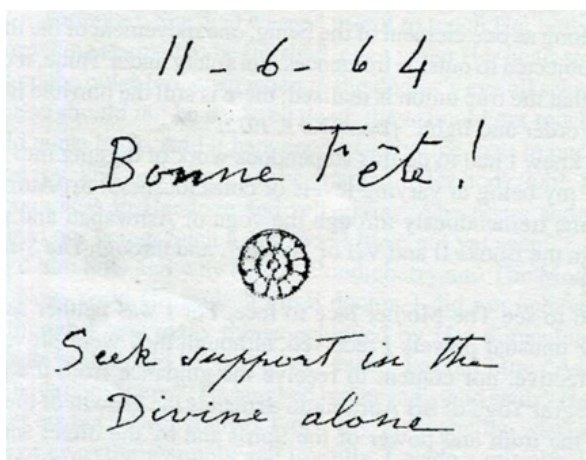 11-6-64
Bonne Fête!
Seek support in the
Divine alone